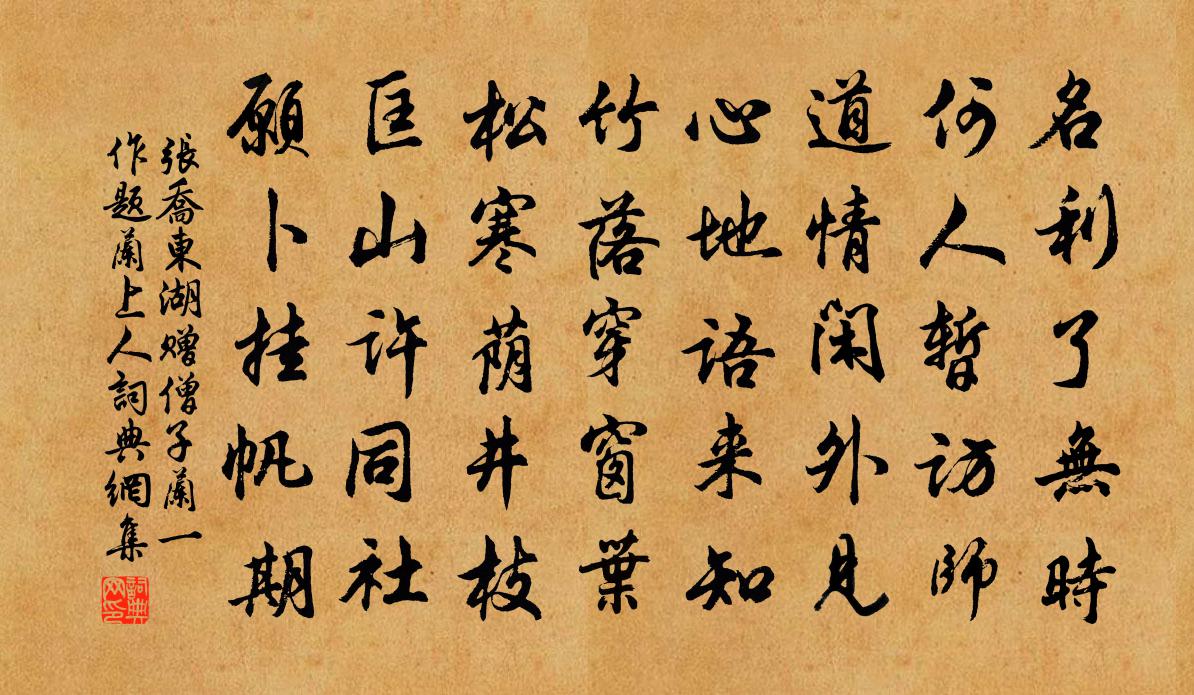 名利了無時
何人暫訪師
道情閑外見
心地語来知
竹落穿窗葉
松寒蔭井枝
匡山許同社
願卜挂帆期
張喬東湖贈僧子蘭一
作題蘭上人詞典網集
詞典网印